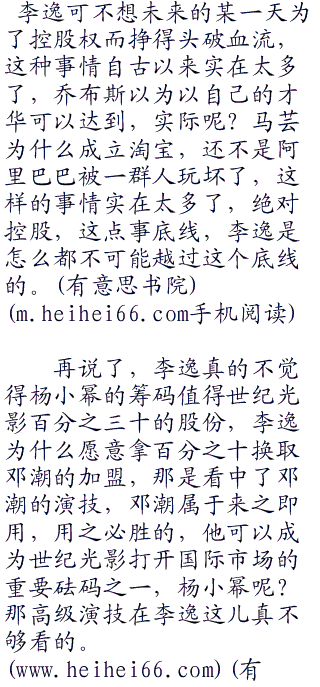 李逸可不想未来的某一天为
了控股权而挣得头破血流，
这种事情自古以来实在太多
了，乔布斯以为以自己的才
华可以达到，实际呢？马芸
为什么成立淘宝，还不是阿
里巴巴被一群人玩坏了，这
样的事情实在太多了，绝对
控股，这点事底线，李逸是
怎么都不可能越过这个底线
的。(有意思书院)
(m.heihei66.com手机阅读)
再说了，李逸真的不觉
得杨小幂的筹码值得世纪光
影百分之三十的股份，李逸
为什么愿意拿百分之十换取
邓潮的加盟，那是看中了邓
潮的演技，邓潮属于来之即
用，用之必胜的，他可以成
为世纪光影打开国际市场的
重要砝码之一，杨小幂呢？
那高级演技在李逸这儿真不
够看的。
(www.heihei66.com)(有